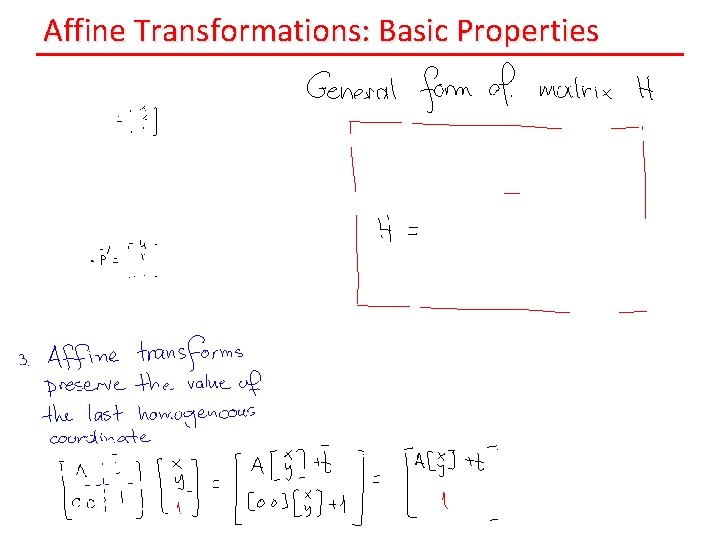 Affine Transformations: Basic Properties
General form of matrix H
H =
p' =
3. Affine transforms
preserve the value of
the last homogeneous
coordinate
[A; 0 0 1] [x y 1] = [A[x y] + t; [0 0][x y] + 1] = [A[x y] + t; 1]